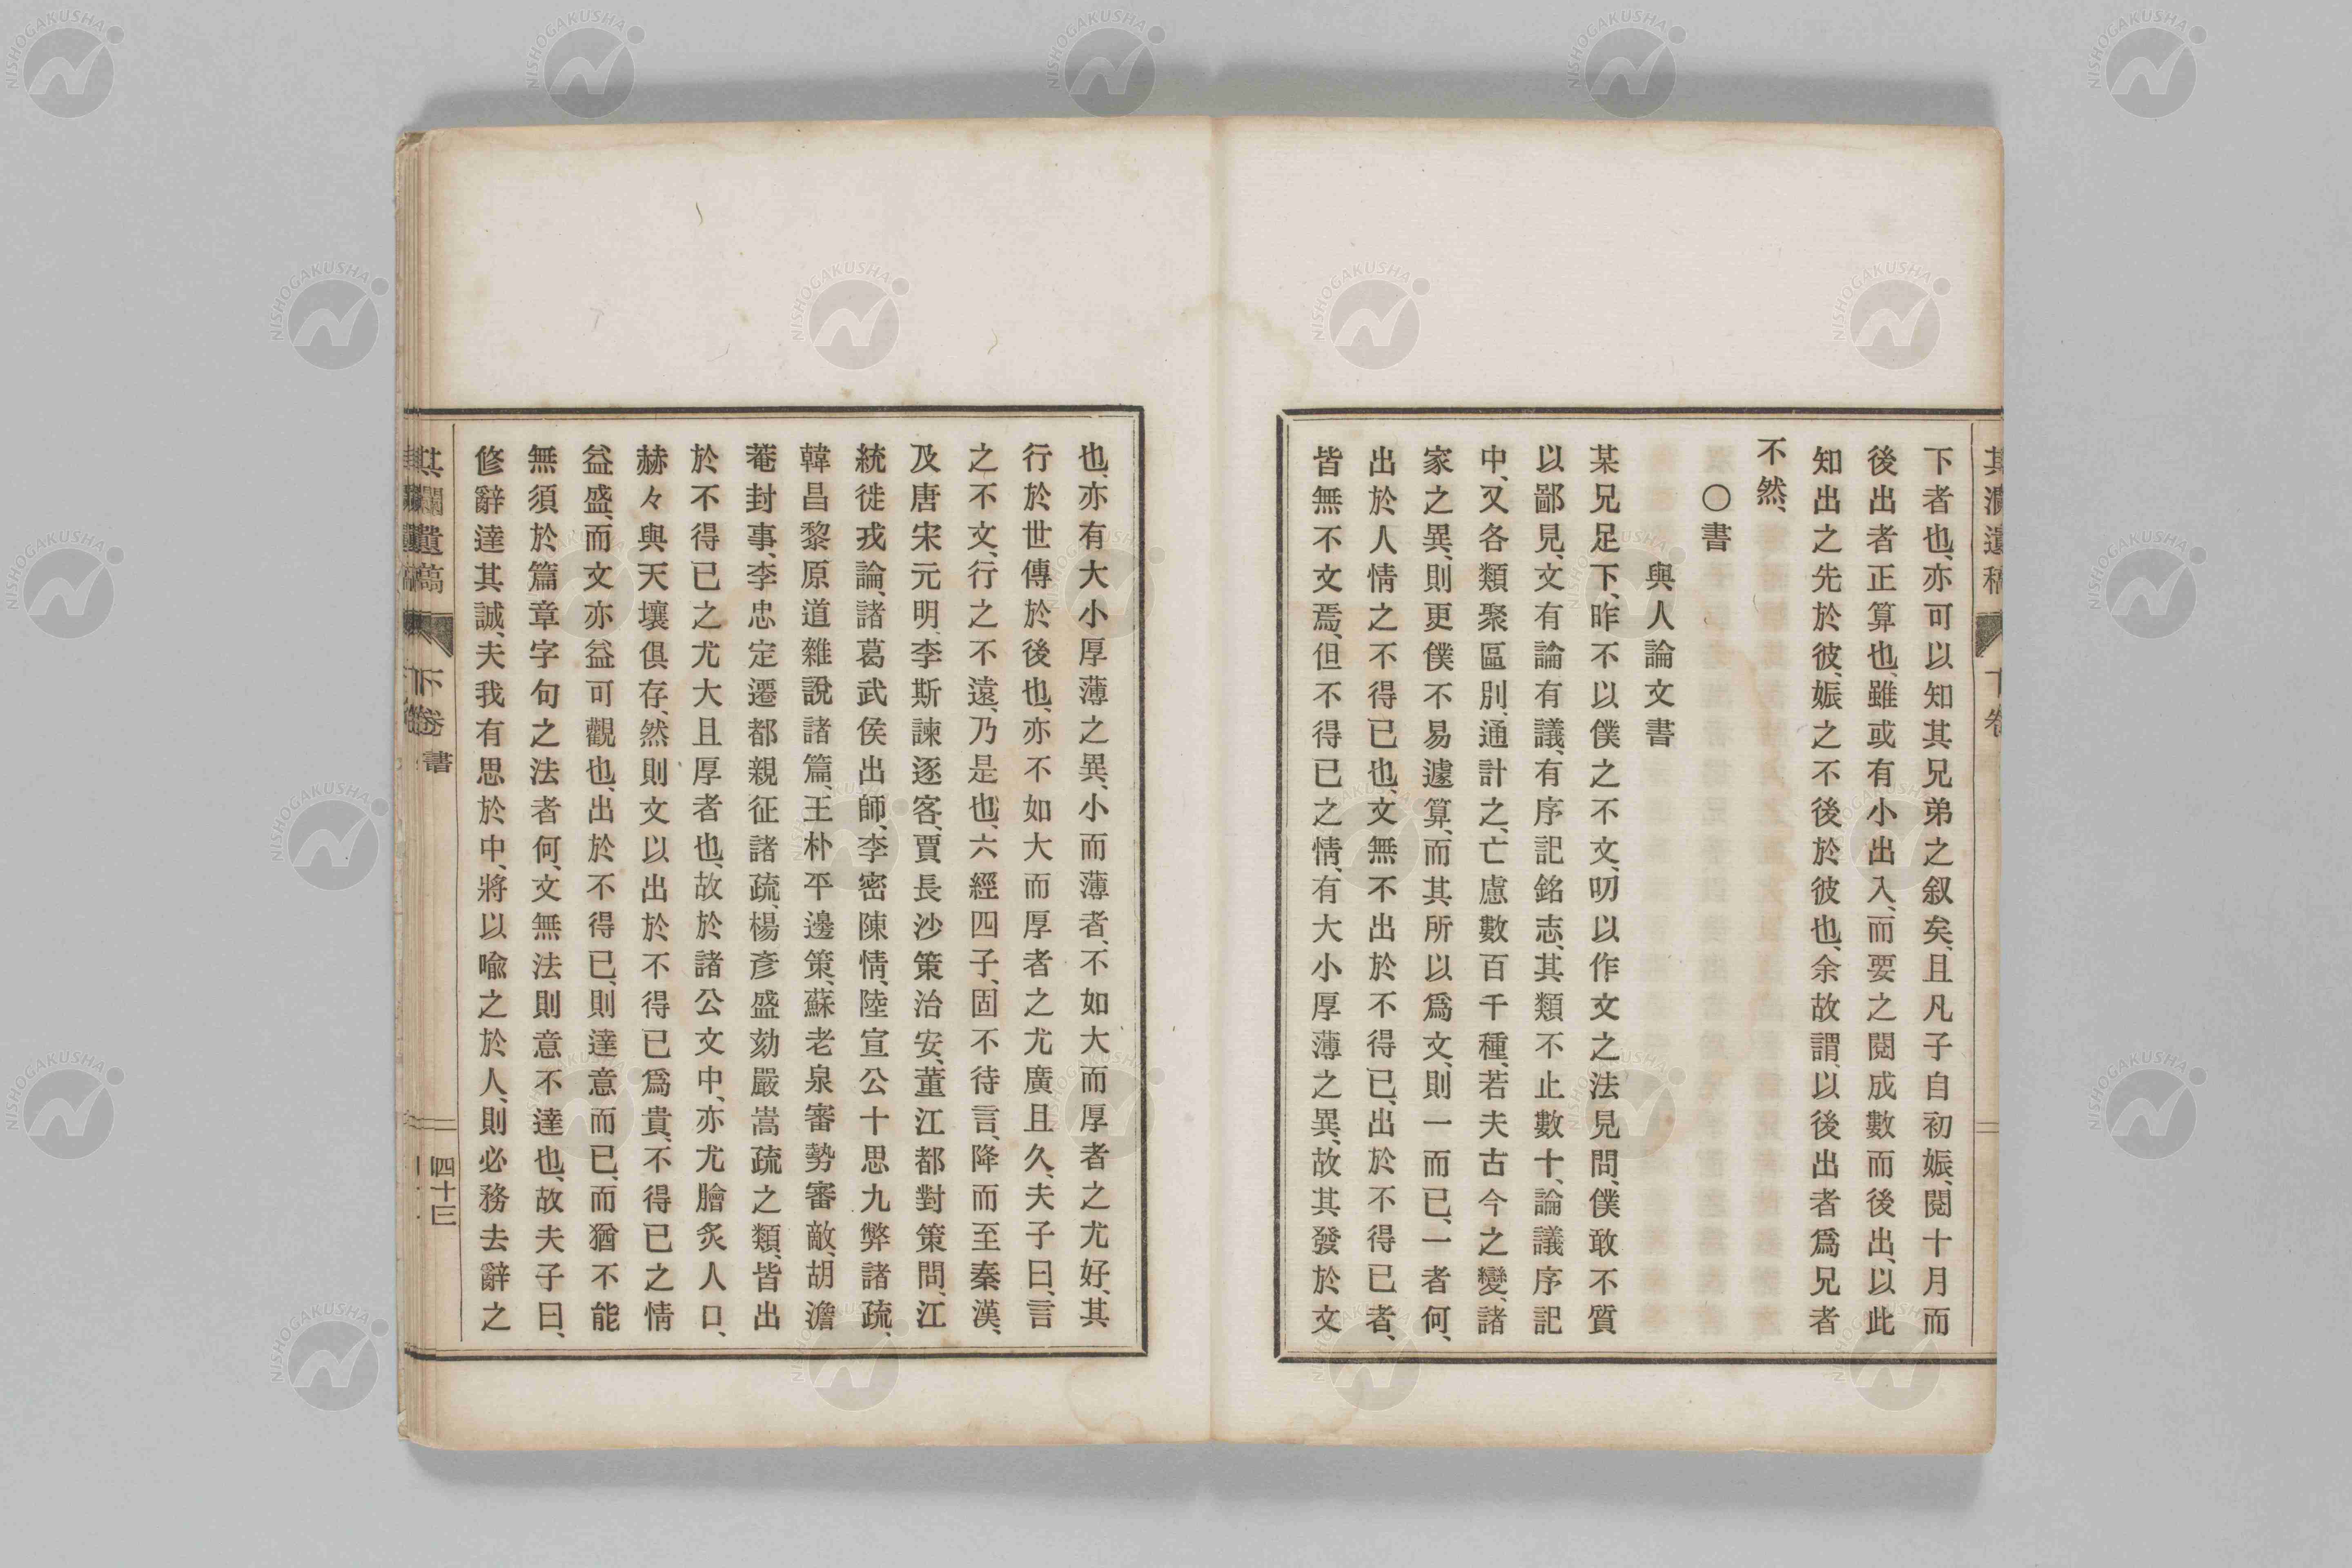 下者也、亦可以知其兄弟之叙矣、且凡子自初娠、閱十月而
後出者正算也、雖或有小出入、而要之閱成數而後出、以此
知出之先於彼、娠之不後於彼也、余故謂、以後出者爲兄者
不然、
〇書
與人論文書
某兄足下、昨不以僕之不文、叨以作文之法見問、僕敢不質
以鄙見、文有論有議、有序記銘志、其類不止數十、論議序記
中、又各類聚區別、通計之、亡慮數百千種、若夫古今之變、諸
家之異、則更僕不易遽算、而其所以爲文、則一而已、一者何、
出於人情之不得已也、文無不出於不得已、出於不得已者、
皆無不文焉、但不得已之情、有大小厚薄之異、故其發於文
也、亦有大小厚薄之異、小而薄者、不如大而厚者之尤好、其
行於世傳於後也、亦不如大而厚者之尤廣且久、夫子曰、言
之不文、行之不遠、乃是也、六經四子、固不待言、降而至秦漢、
及唐宋元明、李斯諫逐客、賈長沙策治安、董江都對策問、江
統徙戎論、諸葛武侯出師、李密陳情、陸宣公十思九弊諸疏、
韓昌黎原道雜說諸篇、王朴平邊策、蘇老泉審勢審敵、胡澹
菴封事、李忠定遷都親征諸疏、楊彥盛劾嚴嵩疏之類、皆出
於不得已之尤大且厚者也、故於諸公文中、亦尤膾炙人口、
赫々與天壤俱存、然則文以出於不得已爲貴、不得已之情
益盛、而文亦益可觀也、出於不得已、則達意而已、而猶不能
無須於篇章字句之法者何、文無法則意不達也、故夫子曰、
修辭達其誠、夫我有思於中、將以喩之於人、則必務去辭之
其瀾遺稿
下卷
書
四十三